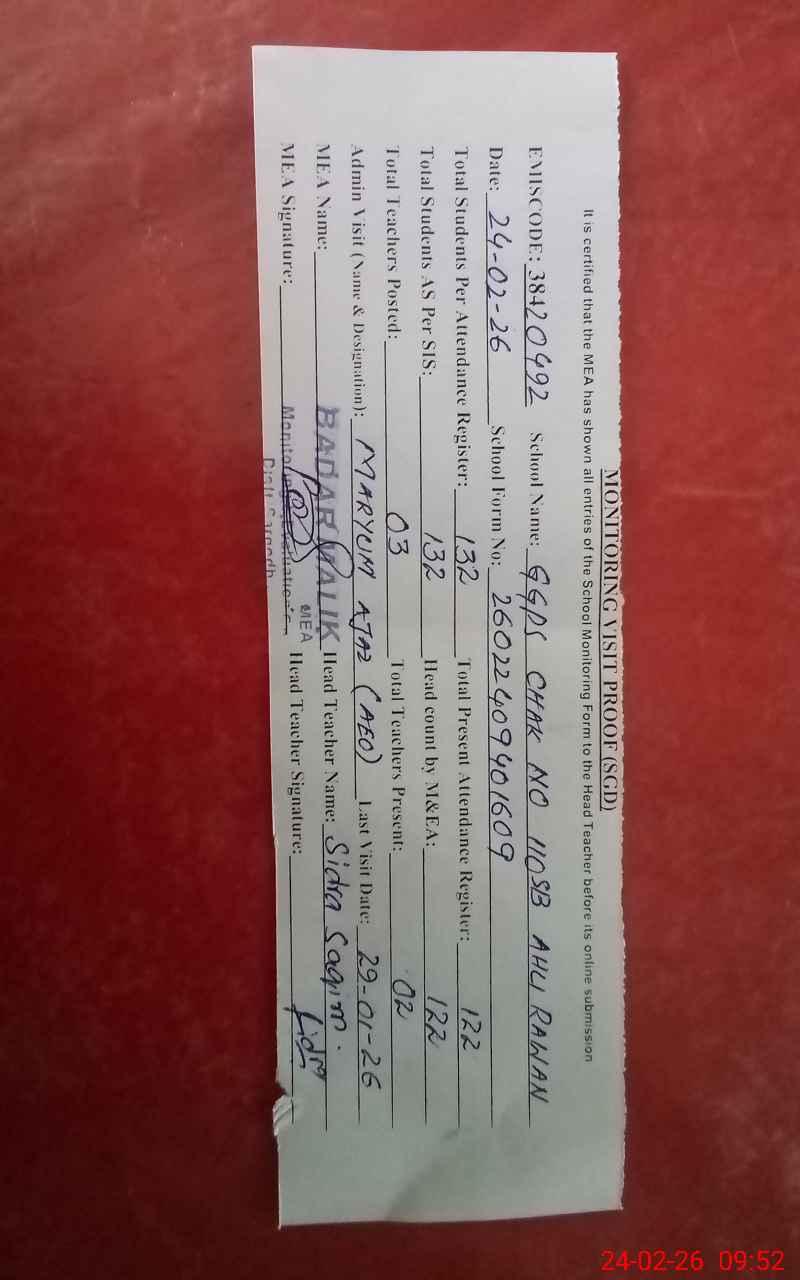 MONITORING VISIT PROOF (SGD)
It is certified that the MEA has shown all entries of the School Monitoring Form to the Head Teacher before its online submission
EMISCODE: 38420492 School Name: GGPS CHAK NO 110SB AHLI RAWAN
Date: 24-02-26 School Form No: 26022409401609
Total Students Per Attendance Register: 132 Total Present Attendance Register: 122
Total Students AS Per SIS: 132 Head count by M&EA: 122
Total Teachers Posted: 03 Total Teachers Present: 02
Admin Visit (Name & Designation): MARYUM AJAZ (AEO) Last Visit Date: 29-01-26
MEA Name: BADAR MALIK Head Teacher Name: Sidra Saqim.
MEA
MEA Signature: Head Teacher Signature: Sidra
24-02-26 09:52